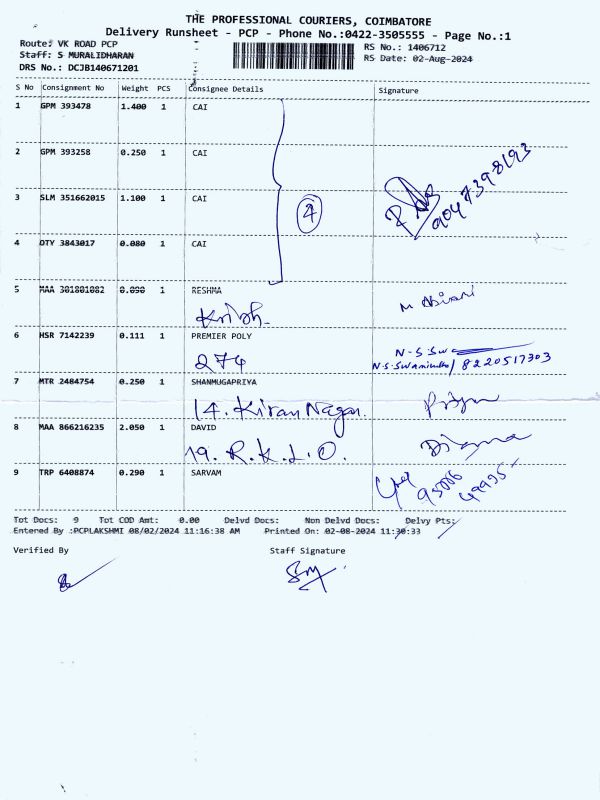 THE PROFESSIONAL COURIERS, COIMBATORE
Delivery Runsheet - PCP - Phone No.:0422-3505555 - Page No.:1
Route: VK ROAD PCP
Staff: S MURALIDHARAN
DRS No.: DCJB140671201
RS No.: 1406712
RS Date: 02-Aug-2024
S No Consignment No Weight PCS Consignee Details Signature
1 GPM 393478 1.400 1 CAI
2 GPM 393258 0.250 1 CAI
9047398193
3 SLM 351662015 1.100 1 CAI
4
4 DTY 3843017 0.080 1 CAI
5 MAA 301801082 0.090 1 RESHMA
Krish
6 HSR 7142239 0.111 1 PREMIER POLY
274
N.S.Swa
N.S.Swaminathan/8220517303
7 MTR 2484754 0.250 1 SHANMUGAPRIYA
14. Kiran Nagar.
8 MAA 866216235 2.050 1 DAVID
19. R.K.L.O.
9 TRP 6408874 0.290 1 SARVAM
Tot Docs: 9 Tot COD Amt: 0.00 Delvd Docs: Non Delvd Docs: Delvy Pts:
Entered By :PCPLAKSHMI 08/02/2024 11:16:38 AM Printed On: 02-08-2024 11:30:33
Verified By Staff Signature